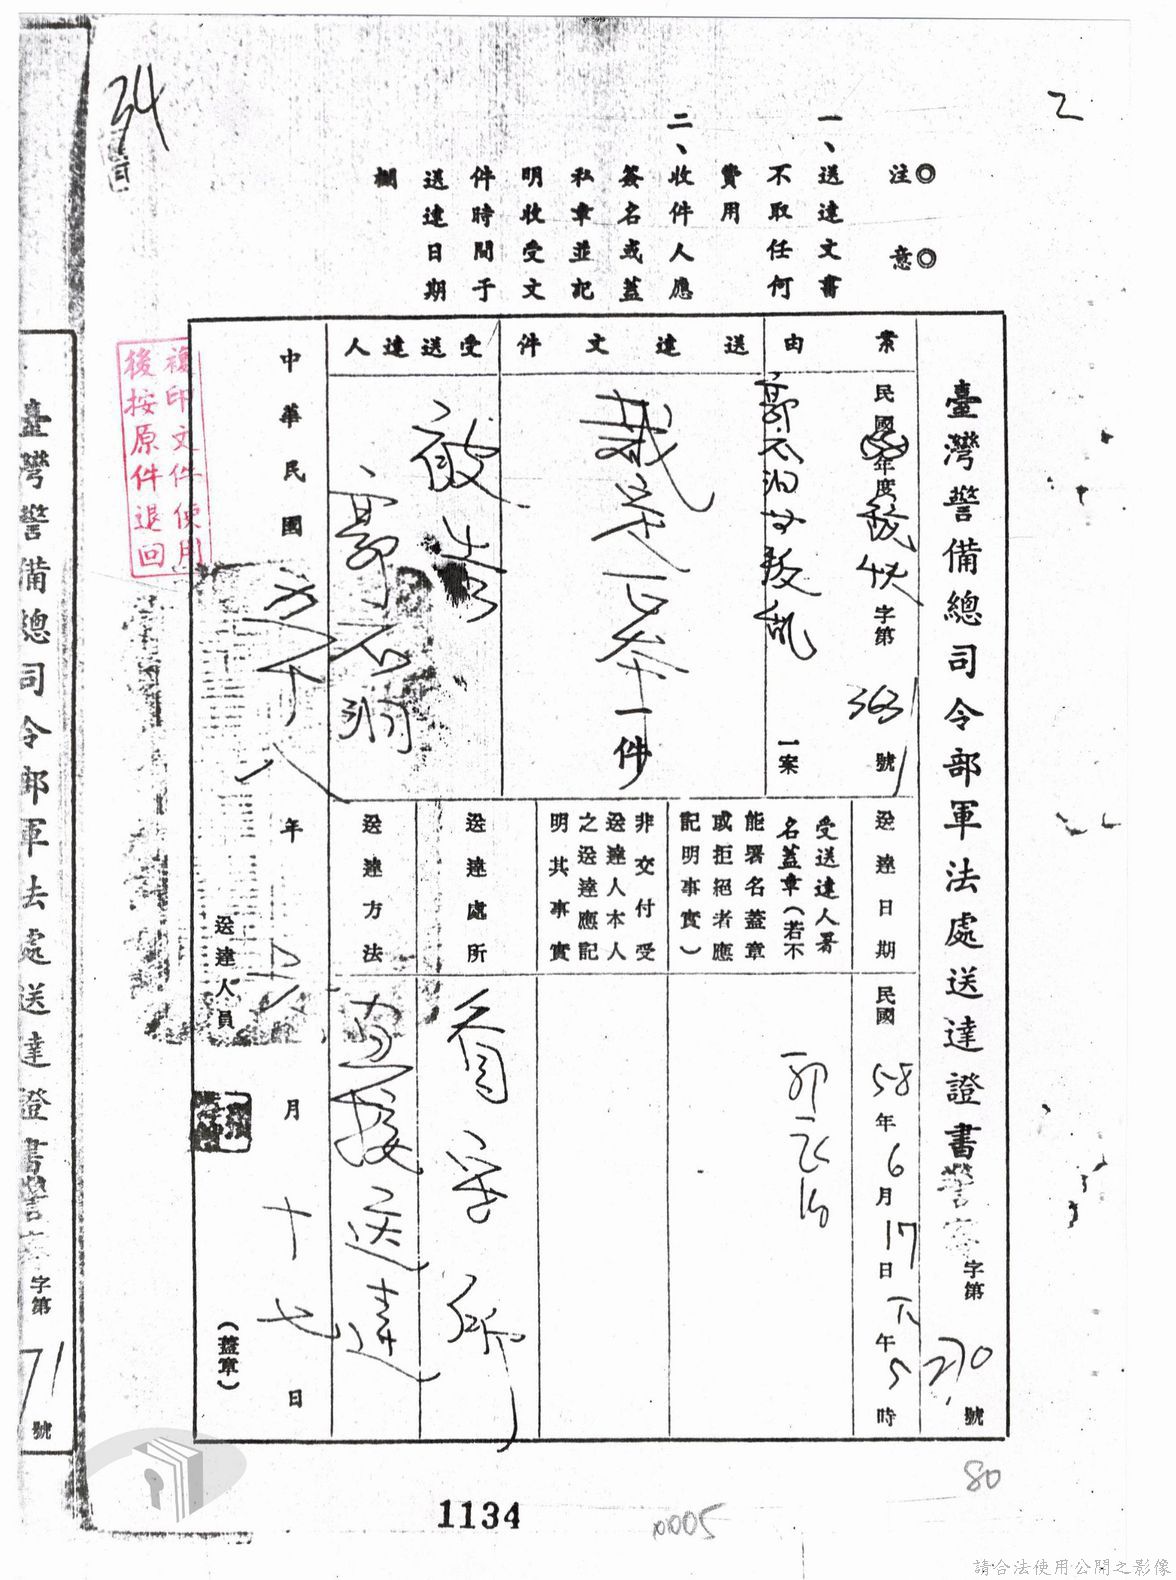 34
2
◎注意◎
一、送達文書
不取任何
費用
二、收件人應
簽名或蓋
私章並記
明收受文
件時間于
送達日期
欄
臺灣警備總司令部軍法處送達證書
警字第270號
案由
民國年度字第3631號
叛亂一案
送達文件
裁定正本一件
受送達人
被告
送達日期
民國58年6月17日下午5時
受送達人署
名蓋章(若不
能署名蓋章
或拒絕者應
記明事實)
非交付受
送達人本人
之送達應記
明其事實
送達處所
看守所
送達方法
直接送達
中華民國五十八年六月十七日
送達人員
(蓋章)
複印文件使用
後按原件退回
臺灣警備總司令部軍法處送達證書
警字第71號
80
1134
0005
請合法使用公開之影像